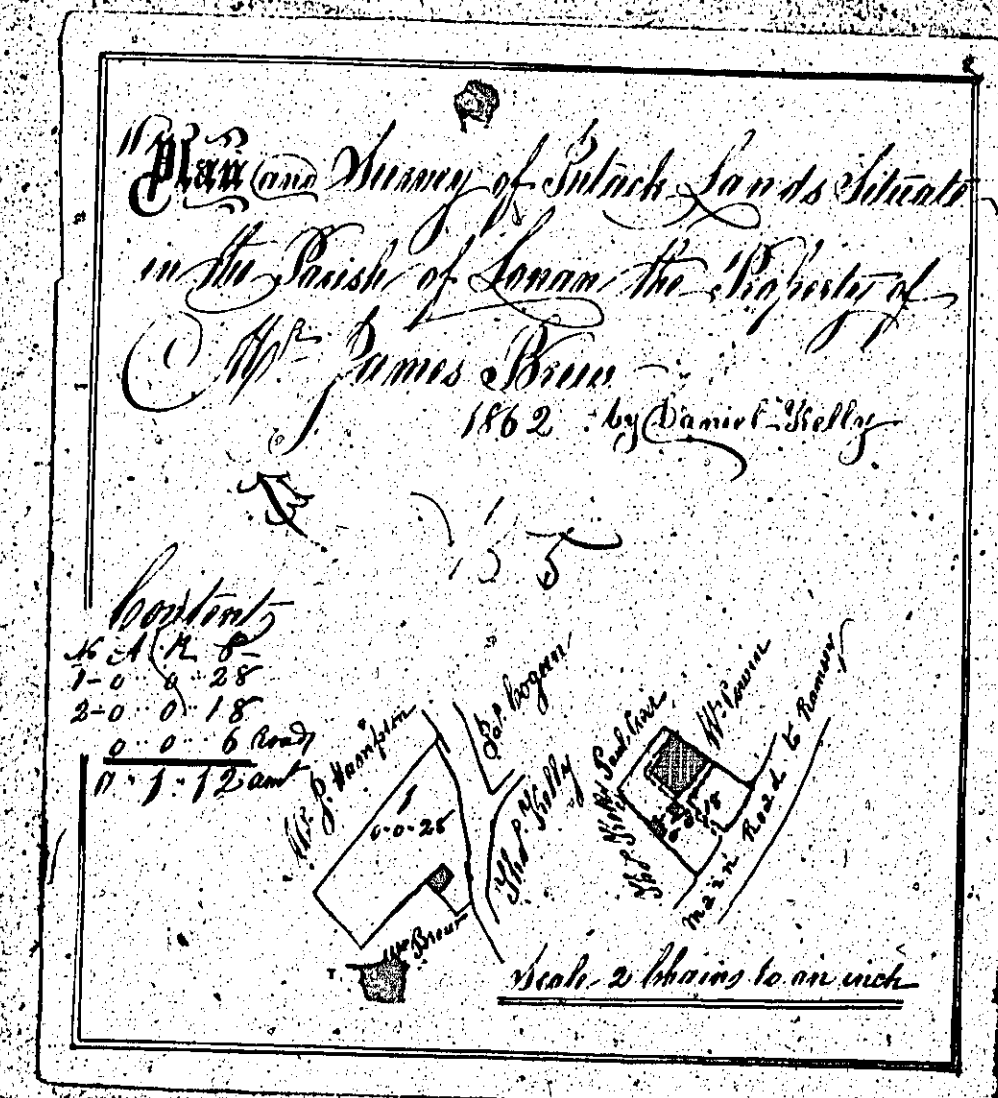 Plan and Survey of Intack Lands Situate
in the Parish of Lonan the Property of
Mr James Brew
1862 by Daniel Kelly
Contents
No A R P
1-0..0..28
2-0..0..18
0..0..6 Road
0..1..12 amt
Pat. Cogan
Thos. Kelly
1
0-0-28
Wm Brew
2
0-0-18
Main Road to Ramsey
Scale 2 Chains to an inch